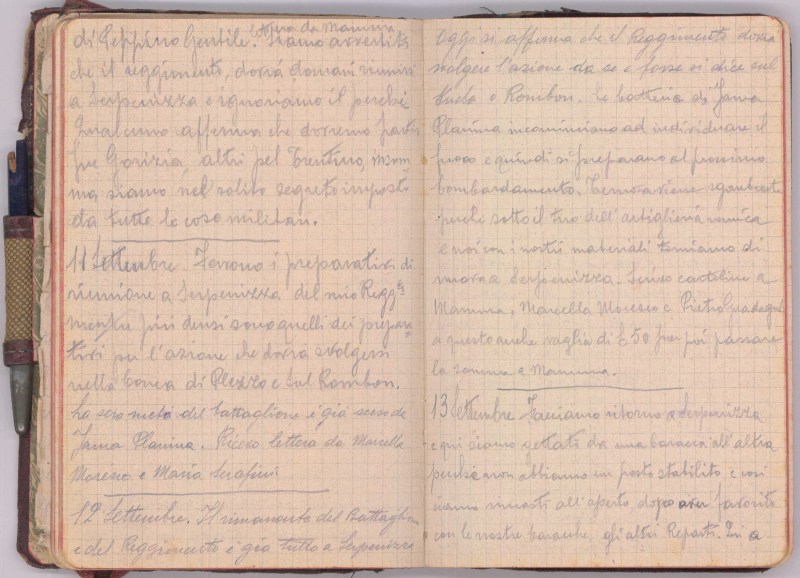 di Peppino Gentile. lettera da Mamma
Siamo avvertiti
che il reggimento, dovrà domani riunirsi
a Serpenizza e ignoriamo il perché
Qualcuno afferma che dovremo partire
per Gorizia, altri pel Trentino, insom
ma siamo nel solito segreto imposto
da tutte le cose militari.
11 Settembre. Fervono i preparativi di
riunione a Serpenizza del mio Regg.to
mentre più densi sono quelli dei prepara
tivi per l'azione che dovrà svolgersi
nella conca di Plezzo e sul Rombon.
La sera metà del battaglione è già scesa da
Jama Planina. Ricevo lettera da Marcella
Moresco e Maria Serafini
12 Settembre. Il rimanente del Battaglione
e del Reggimento è già tutto a Serpenizza
Oggi si afferma che il Reggimento dovrà
svolgere l'azione da se e forse si dice sul
Cuclo e Rombon. Le batterie di Jama
Planina incominciano ad individuare il
fuoco e quindi si preparano al prossimo
bombardamento. Temoraviene sgomberata
perché sotto il tiro dell'artiglieria nemica
e noi con i nostri materiali torniamo di
nuovo a Serpenizza. Scrivo cartoline a
Mamma, Marcella Moresco e Pietro Guadagni
a questo anche vaglia di £ 50 per poi passare
la somma a Mamma.
13 Settembre Facciamo ritorno a Serpenizza
e qui siamo gettati da una baracca all'altra
perché non abbiamo un posto stabilito e così
siamo rimasti all'aperto dopo aver favorito
con le nostre baracche, gli altri Reparti. In a